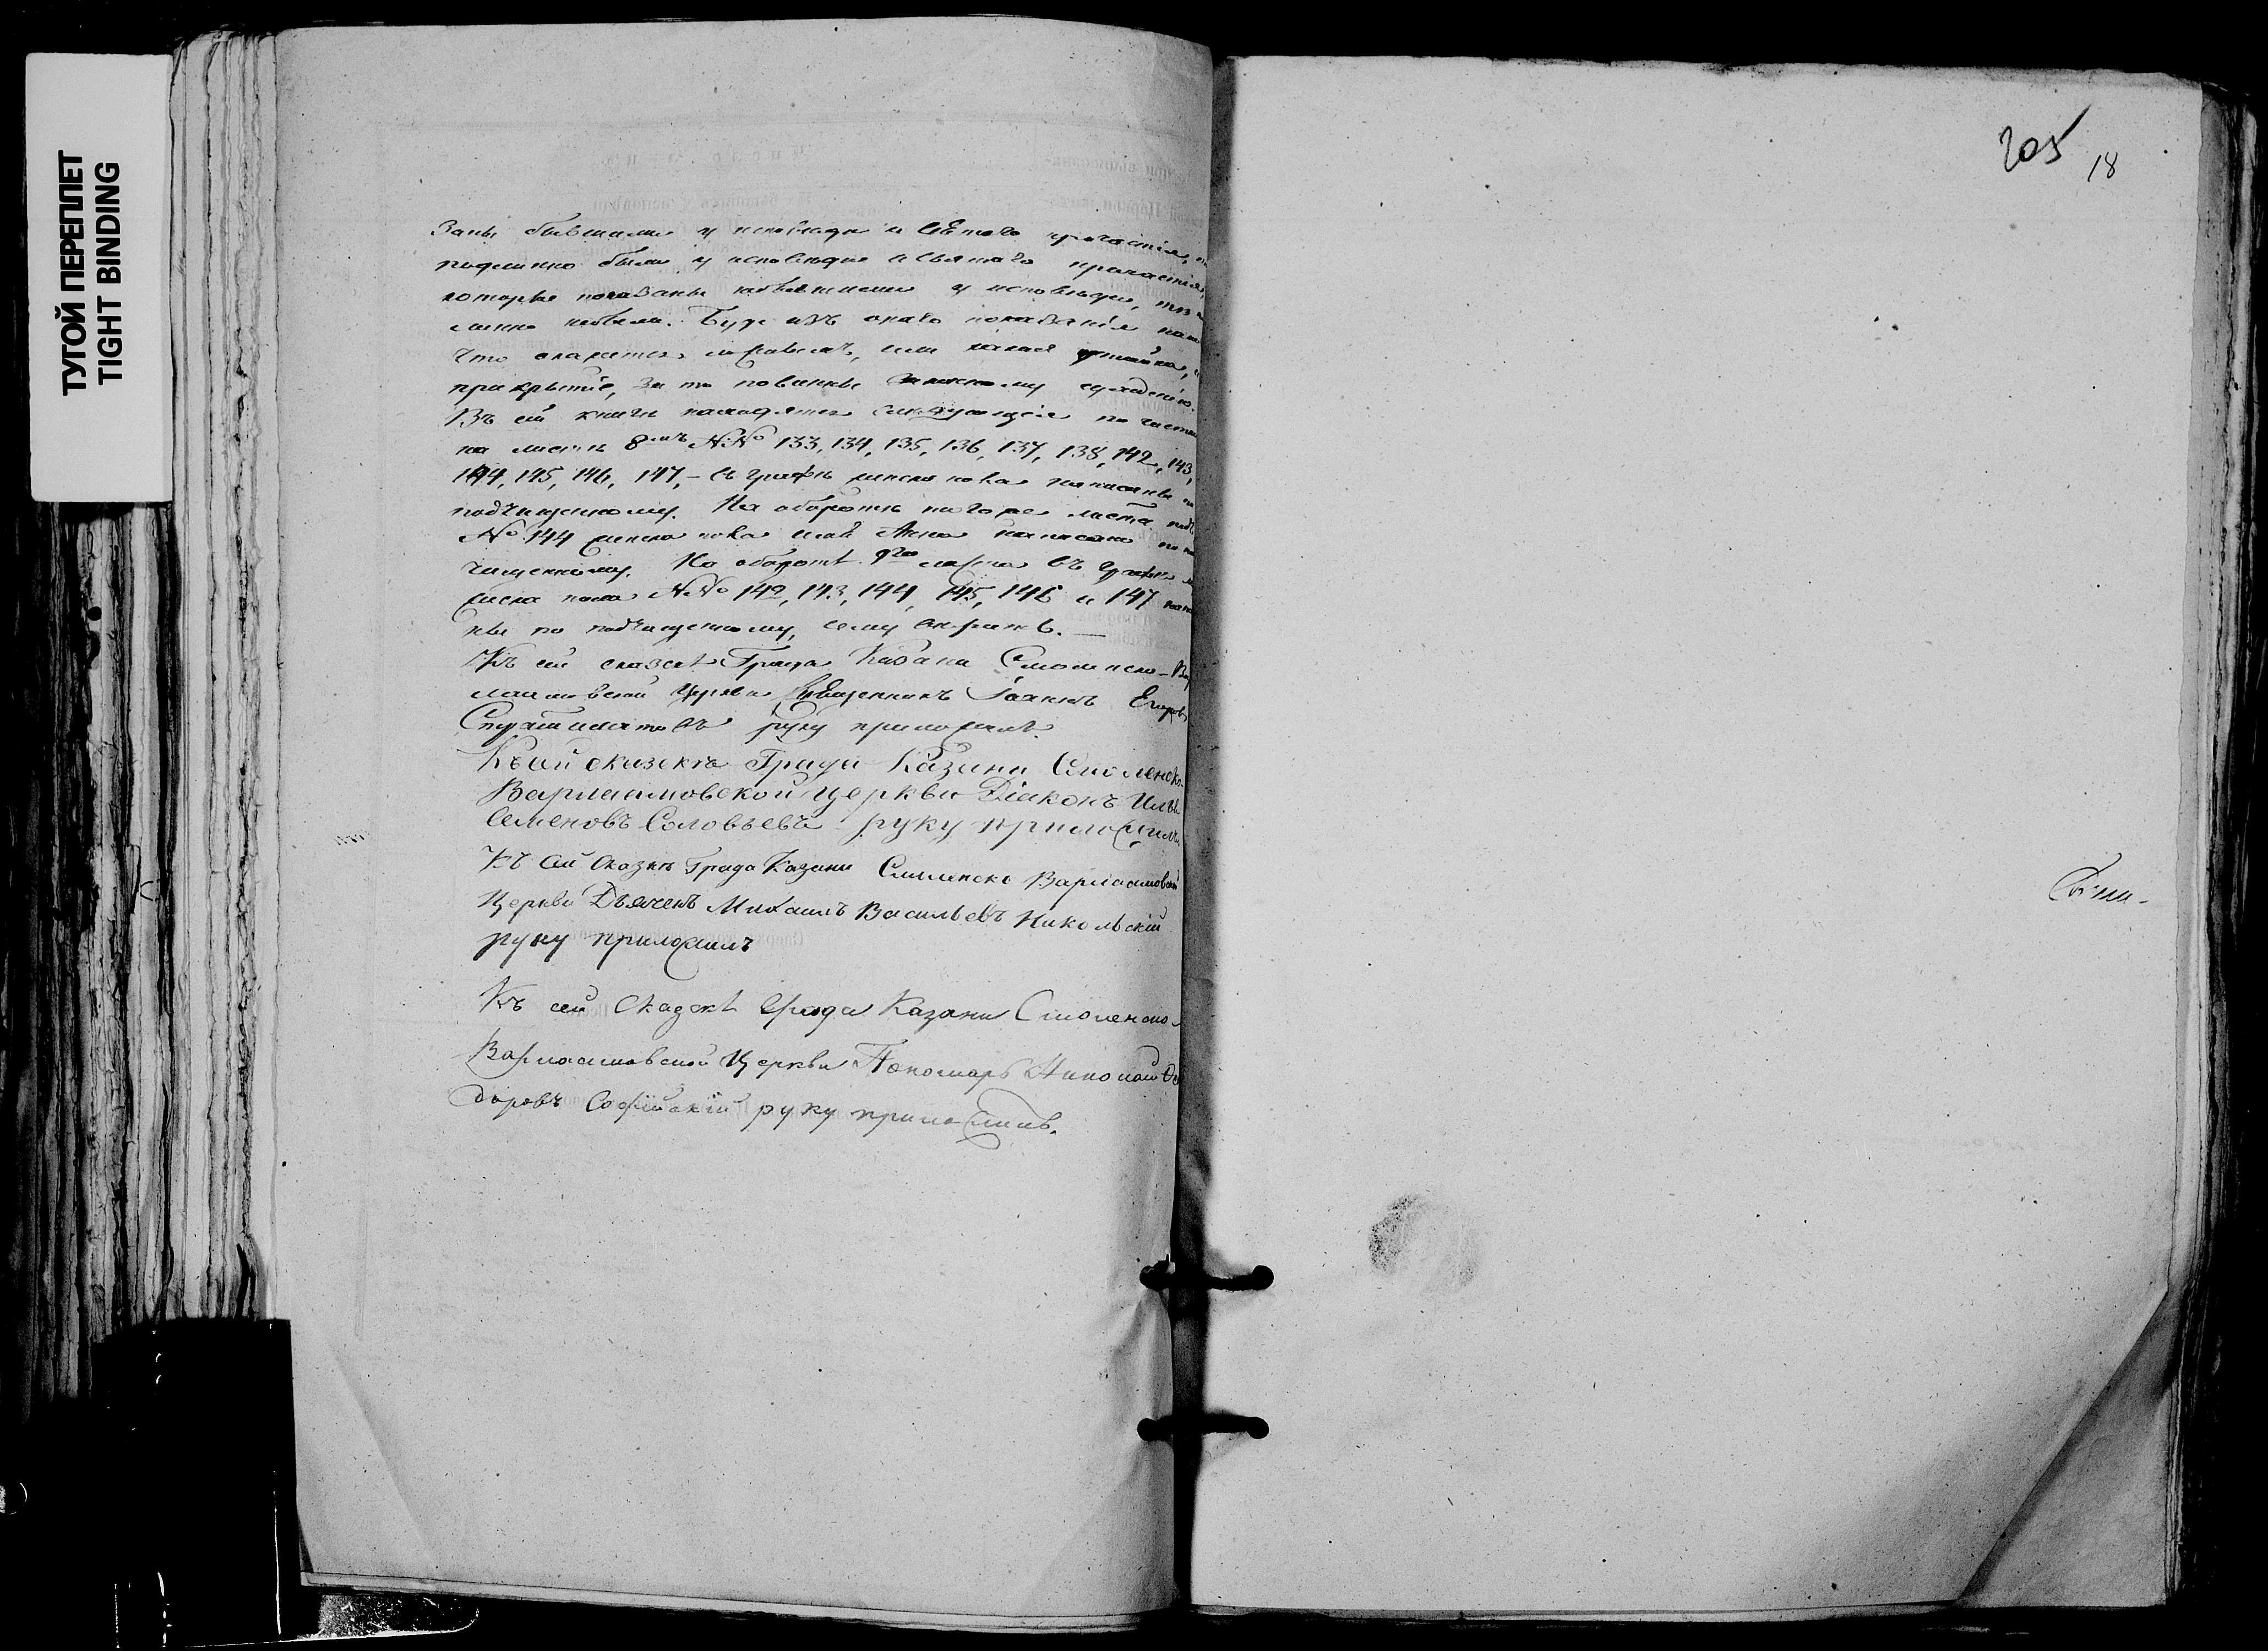 ТУГОЙ ПЕРЕПЛЕТ
TIGHT BINDING
заны бывшими у исповеди и святаго причастія,
подлинно были у исповеди и святаго причастія,
которые показаны небывшими у исповеди,
небыли. Буде изъ онаго показанія
что окажется или какая утайка,
прикрытіе, за то повинны суждению.
Въ сей книге находятся следующія по чистк
на листе 8мъ №№ 133, 134, 135, 136, 137, 138, 142, 143,
144, 145, 146, 147, – въ графе написаны по
подчищенному. На обороте листа
№ 144 пола имя Анна написано по
чищенному. На обороте 9го листа въ графе
пола №№ 142, 143, 144, 145, 146 и 147
ны по подчищенному, сему
Къ сей сказке Града Казани Смоленско-Вар
лаамовской Церкви Священникъ Іоаннъ Егоровъ
руку приложилъ.
Къ сей сказке Града Казани Смоленско-
Варлаамовской Церкви Діаконъ Илья
Семеновъ Соловьевъ руку приложилъ
Къ сей Сказке Града Казани Смоленско Варлаамовской
Церкви Дьячекъ Михаилъ Васильевъ Никольскій
руку приложилъ
Къ сей Сказке Града Казани Смоленско-
Варлаамовской Церкви Пономарь Николай Ѳе
доровъ Софійскій руку приложилъ.
205
18